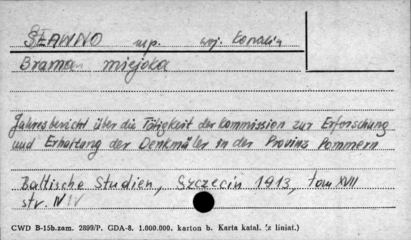 SŁAWNO mp. woj. Koszalin
Brama miejska
Jahresbericht über die Tätigkeit der Kommission zur Erforschung
und Erhaltung der Denkmäler in der Provinz Pommern
Baltische Studien, Szczecin 1913, tom XVII
str. IV
CWD B-15b.zam. 2899/P. GDA-8. 1.000.000. karton b. Karta katal. (z liniat.)